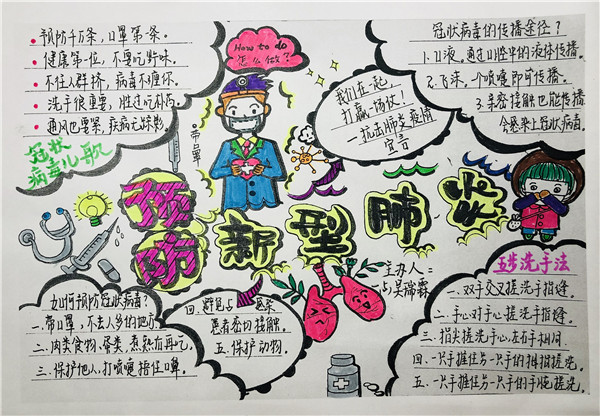 预防千万条，口罩第一条。
健康第一位，不要吃野味。
不往人群挤，病毒不缠你。
洗手很重要，胜过吃补药。
通风也要紧，疾病无踪影。
冠状
病毒儿歌
How to do
怎么做？
带口罩
我们在一起
打赢一场仗！
抗击肺炎疫情
宣言
冠状病毒的传播途径？
1.口液。通过口腔中的液体传播。
2.飞沫。一个喷嚏即可传播。
3.亲密接触也能传播
会感染上冠状病毒。
预防新型肺炎
主办人：
吴瑞霖
如何预防冠状病毒？
一.带口罩，不去人多的地方。
二.肉类食物、蛋类，煮熟在再吃。
三.保护他人，打喷嚏捂住口罩。
四.避免与感染
患者密切接触。
五.保护动物。
五步洗手法
一.双手交叉搓洗手指缝。
二.手心对手心搓洗手指缝。
三.指尖搓洗手心，左右手相同。
四.一只手握住另一只手的拇指搓洗。
五.一只手握住另一只手的手腕搓洗。